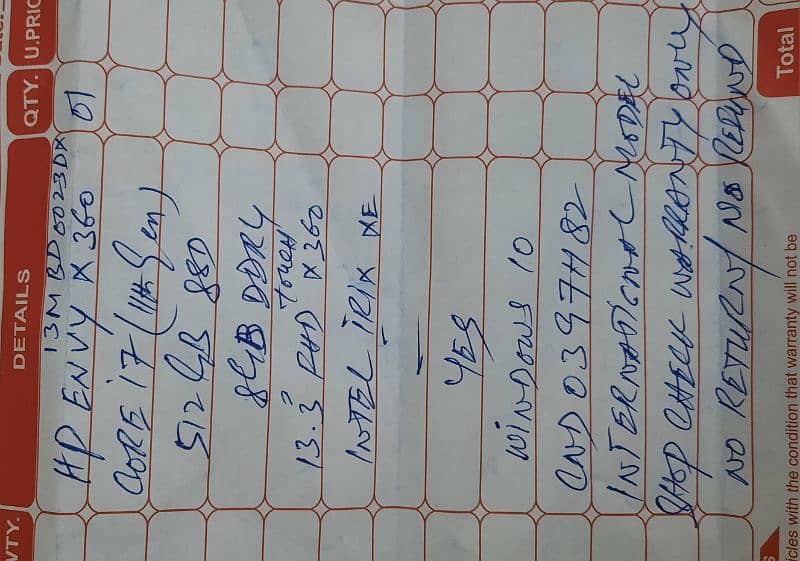 WTY. DETAILS QTY. U.PRIC
13M BD0023DX
HP ENVY X 360 01
CORE i7 (11th Gen)
512 GB SSD
8GB DDR4
13.3" FHD Touch X360
INTEL IRIX XE
-
YES
WINDOWS 10
CND0397H82
INTERNATIONAL MODEL
SHOP CHECK WARRANTY ONLY
NO RETURN/ NO REFUND
Total
icles with the condition that warranty will not be